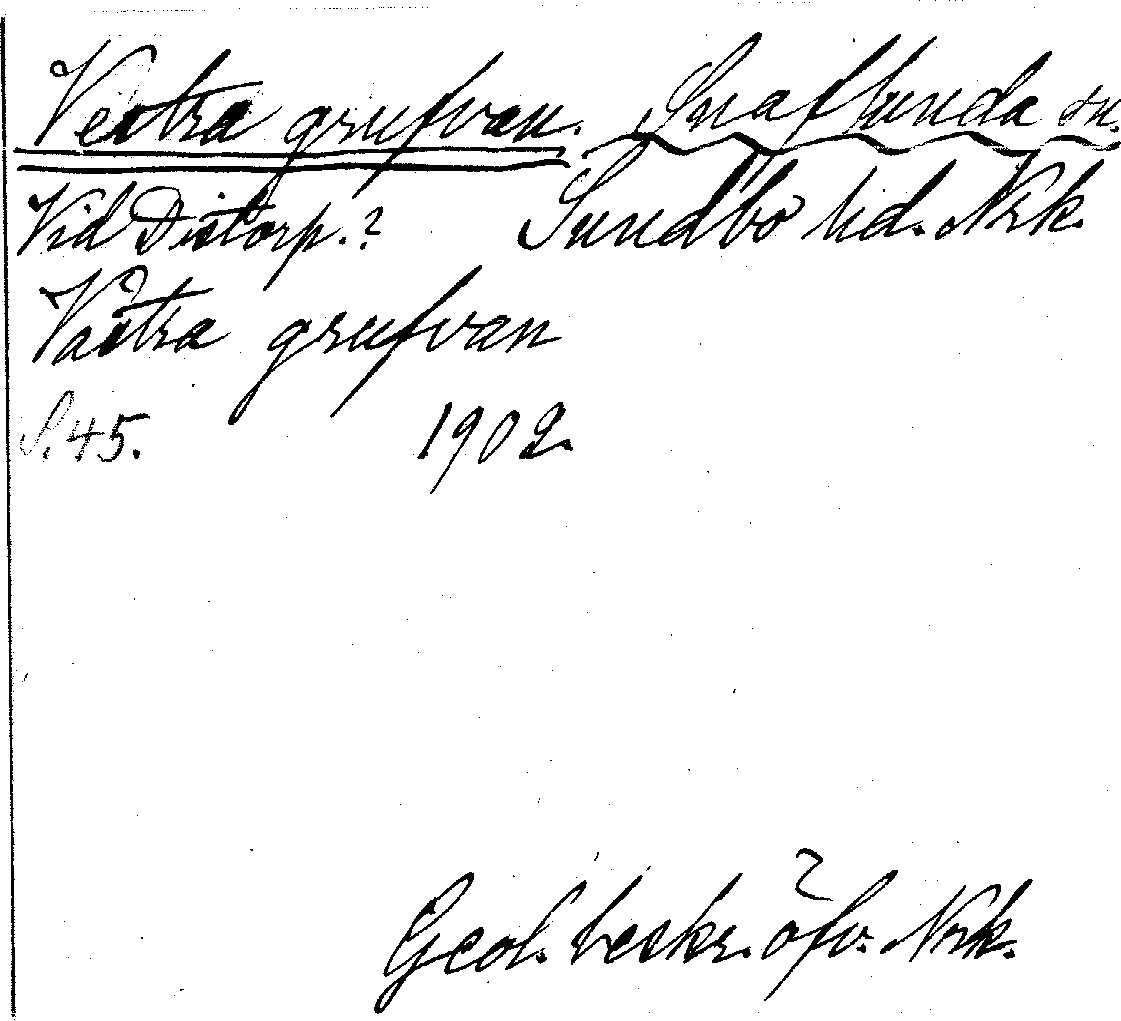 Vestra grufvan. Snaflunda sn.
Vid Distorp.? Sundbo hd. Nrk.
Västra grufvan
S. 45. 1902.
Geol. beskr. öfv. Nrk.